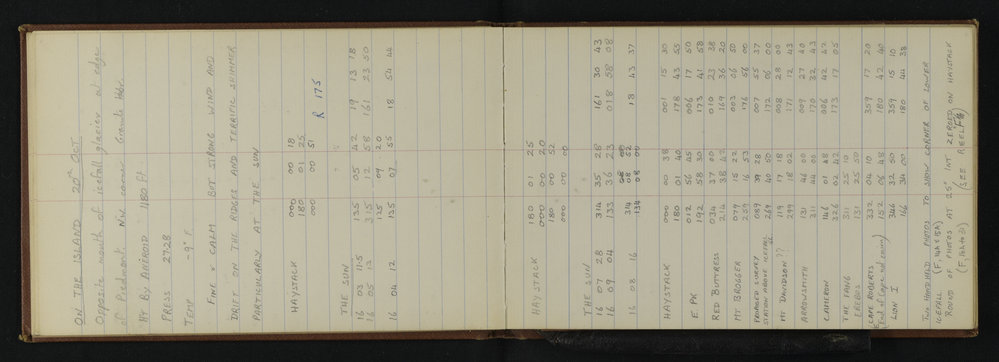 ON THE ISLAND 20TH OCT.
Opposite mouth of icefall glacier at edge
of Piedmont. NW corner Granite Hbr.
HT BY ANEROID 1180 ft
PRESS 27.28
TEMP -9° F.
FINE & CALM BUT STRONG WIND AND
DRIFT ON THE RIDGES AND TERRIFIC SHIMMER
PARTICULARLY AT THE SUN
HAYSTACK 000 00 18
180 01 25
000 00 51 R 175
THE SUN
16 03 11.5 135 05 42 19 13 18
16 05 12 315 12 58 161 23 50
125 07 20
16 04 12 135 07 55 18 54 44
HAYSTACK 180 01 25
000 00 20
180 00 52
000 00 00
THE SUN
16 07 28 314 35 28 161 30 43
16 09 04 133 36 23 018 58 08
16 08 16 314 08 52 18 43 37
134 08 00
HAYSTACK 000 00 38 001 15 30
180 01 40 178 43 55
E. PK 012 56 45 006 17 50
192 58 30 173 41 58
RED BUTTRESS 034 37 00 010 23 38
214 38 42 169 36 20
MT BROGGER 079 15 22 003 06 50
259 16 53 176 56 00
PROPOSED SURVEY 089 39 28 007 55 37
STATION ABOVE ICEFALL 269 40 50 172 06 00
MT DAVIDSON?? 119 17 18 008 28 00
299 18 02 171 12 43
ARROWSMITH 131 46 00 009 27 43
311 44 00 170 32 43
CAMERON 146 01 48 006 42 42
326 02 42 173 17 05
THE FANG 311 25 10
EREBUS 331 25 50
CAPE ROBERTS 332 04 10 359 17 20
(End of Cape not coming) 152 06 48 180 42 40
LION I 346 32 50 359 15 10
166 34 00 180 44 38
TWO HAND HELD PHOTOS TO SHOW CORNER OF LOWER
ICEFALL (F, 14A & 15A)
ROUND OF PHOTOS AT 25° INT ZEROED ON HAYSTACK
(F, 16A to 31) (SEE REEL F6)